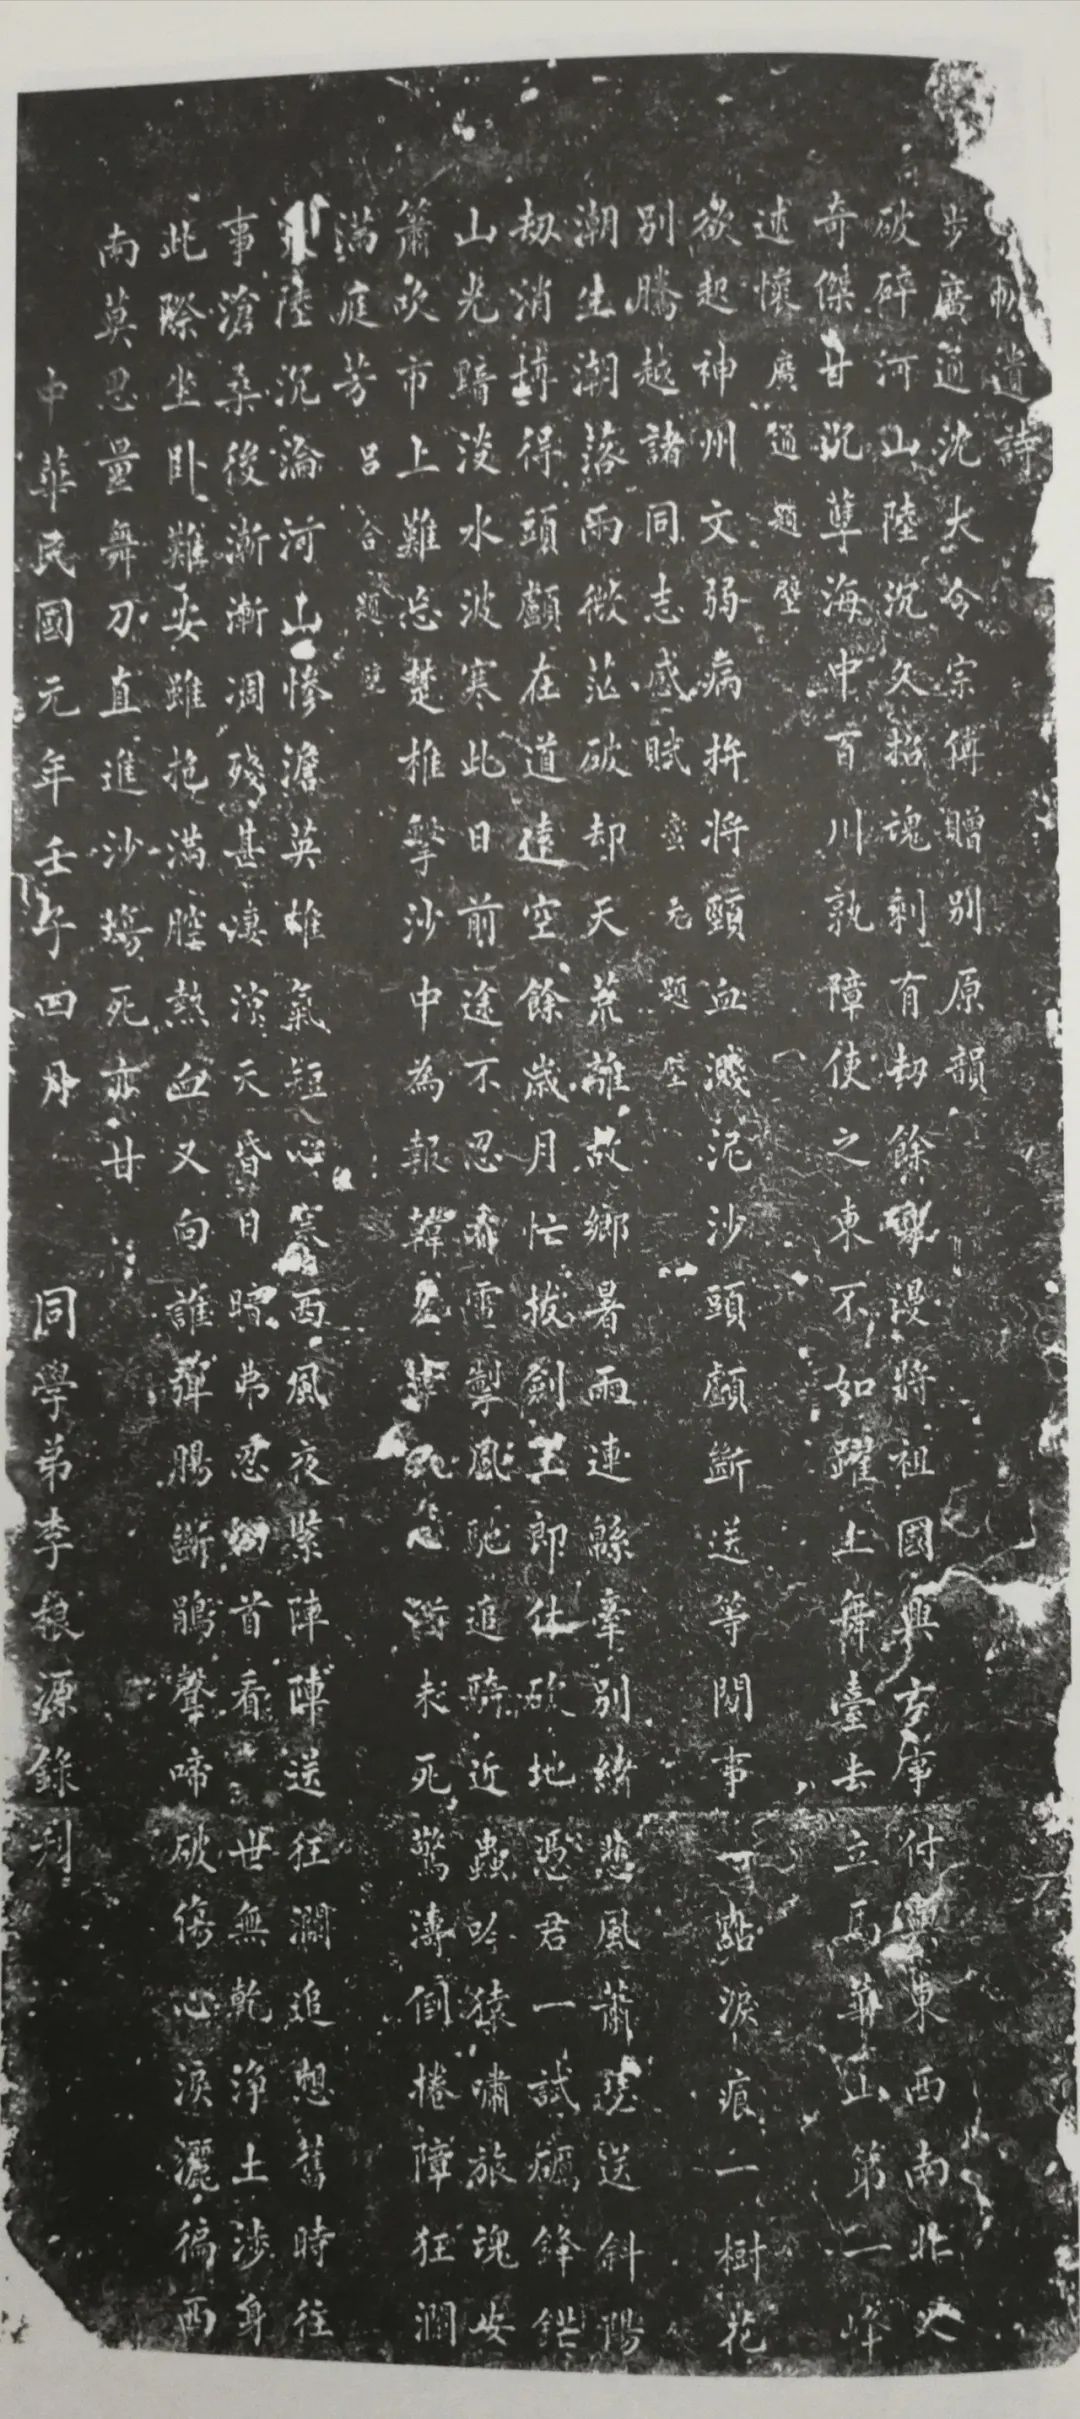 遺詩
步廣逌沈大令宗傅贈別原韻
破碎河山陸沉久招魂剩有劫餘 漫將祖國興亡 付與東西南北人
奇傑甘沉孽海中百川孰障使之東不如躍上舞臺去立馬華山第一峰
述懷 廣逌題壁
欲起神州文弱病拚將頸血濺泥沙頭顱斷送等閒事一點淚痕一樹花
別騰越諸同志感賦 題壁
潮生潮落兩微茫破却天荒離故鄉暑雨連緜牽別緒悲風蕭 送斜陽
劫消摶得頭顱在道遠空餘歲月忙拔劍王郎休砍地憑君一試礪鋒鋩
山光黯淡水波寒此日前途不忍看雷掣風馳追騎近蟲吟猿嘯旅魂安
簫吹市上難忘楚椎擊沙中為報韓 未死驚濤倒捲障狂瀾
滿庭芳 呂合題壁
陸沉淪河山慘澹英雄氣短心 西風夜緊陣陣送狂瀾追想舊時往
事滄桑後漸漸凋殘甚淒涼天昏日暗弗忍 首看 世無乾淨土涉身
此際坐臥難安雖抱滿腔熱血又向誰彈腸斷鵑聲啼破傷心淚灑徧西
南莫思量舞刀直進沙場死亦甘
中華民國元年壬子四月 同學弟李根源錄刊